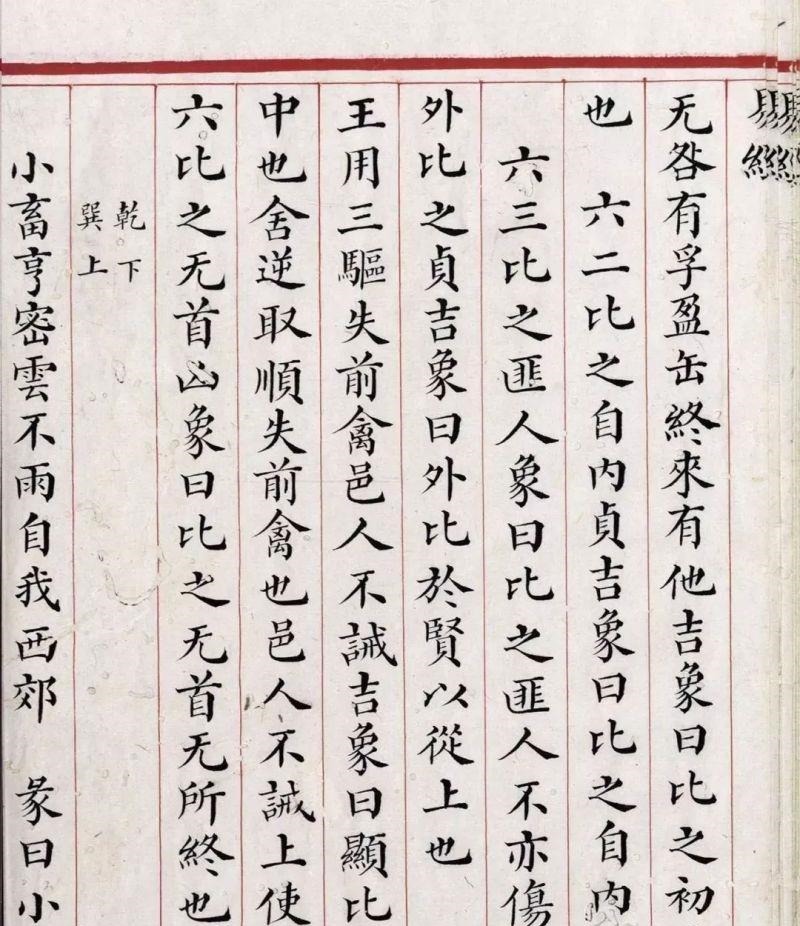 易經
无咎有孚盈缶終來有他吉象曰比之初
也　六二比之自內貞吉象曰比之自內
六三比之匪人象曰比之匪人不亦傷
外比之貞吉象曰外比於賢以從上也
王用三驅失前禽邑人不誡吉象曰顯比
中也舍逆取順失前禽也邑人不誡上使
六比之无首凶象曰比之无首无所終也
乾下
巽上
小畜亨密雲不雨自我西郊　彖曰小